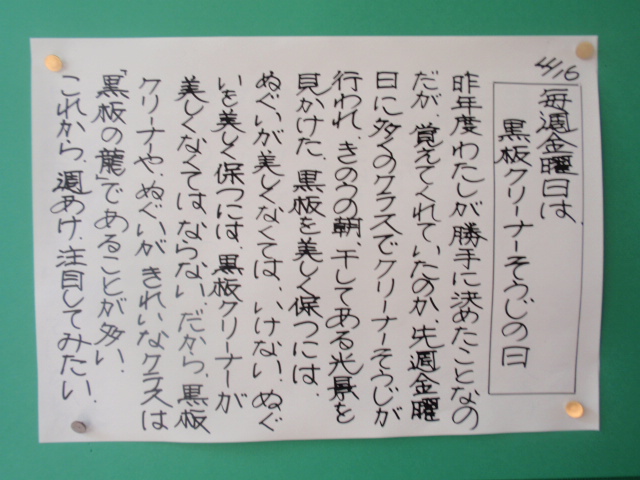 4/16
毎週金曜日は、
黒板クリーナーそうじの日
昨年度わたしが勝手に決めたことなの
だが、覚えてくれていたのか、先週金曜
日に多くのクラスでクリーナーそうじが
行われ、きのうの朝、干してある光景を
見かけた。黒板を美しく保つには、
ぬぐいが美しくなくては、いけない。ぬぐ
いを美しく保つには、黒板クリーナーが
美しくなくては、ならない。だから、黒板
クリーナーや、ぬぐいがきれいなクラスは
「黒板の龍」であることが多い。
これから、週あけ、注目してみたい。